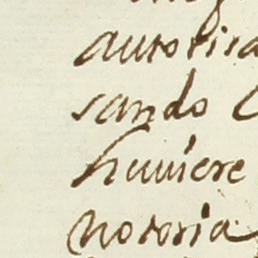 autoriza
sando
huuiere
notoria